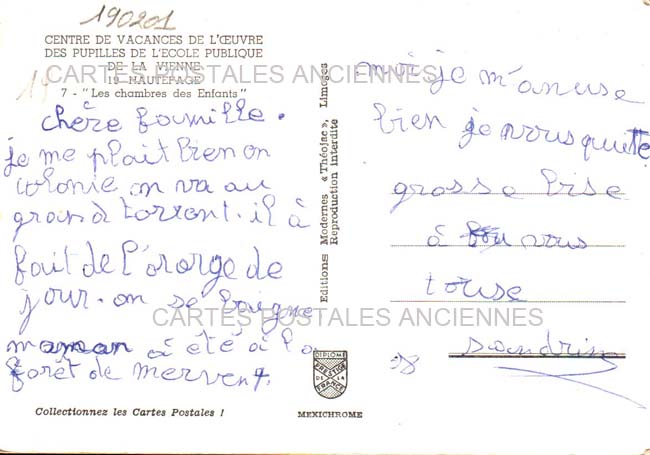 190201
CENTRE DE VACANCES DE L'ŒUVRE
DES PUPILLES DE L'ECOLE PUBLIQUE
DE LA VIENNE
19 HAUTEFAGE
7 - "Les chambres des Enfants"
CARTES POSTALES ANCIENNES
19
chère famille.
je me plait bien on
colonie on va au
grand torront. il à
fait de l'ororge de
jour. on se baigne
maman à été à la
forêt de mervent.
Collectionnez les Cartes Postales !
Editions Modernes « Théojac », Limoges
Reproduction Interdite
DIPLOME
PRESTIGE
DE LA
FRANCE
MEXICHROME
moi je m'anuse
bien je vous quitte
grosse bise
à vous
touse
sandrine
CARTES POSTALES ANCIENNES